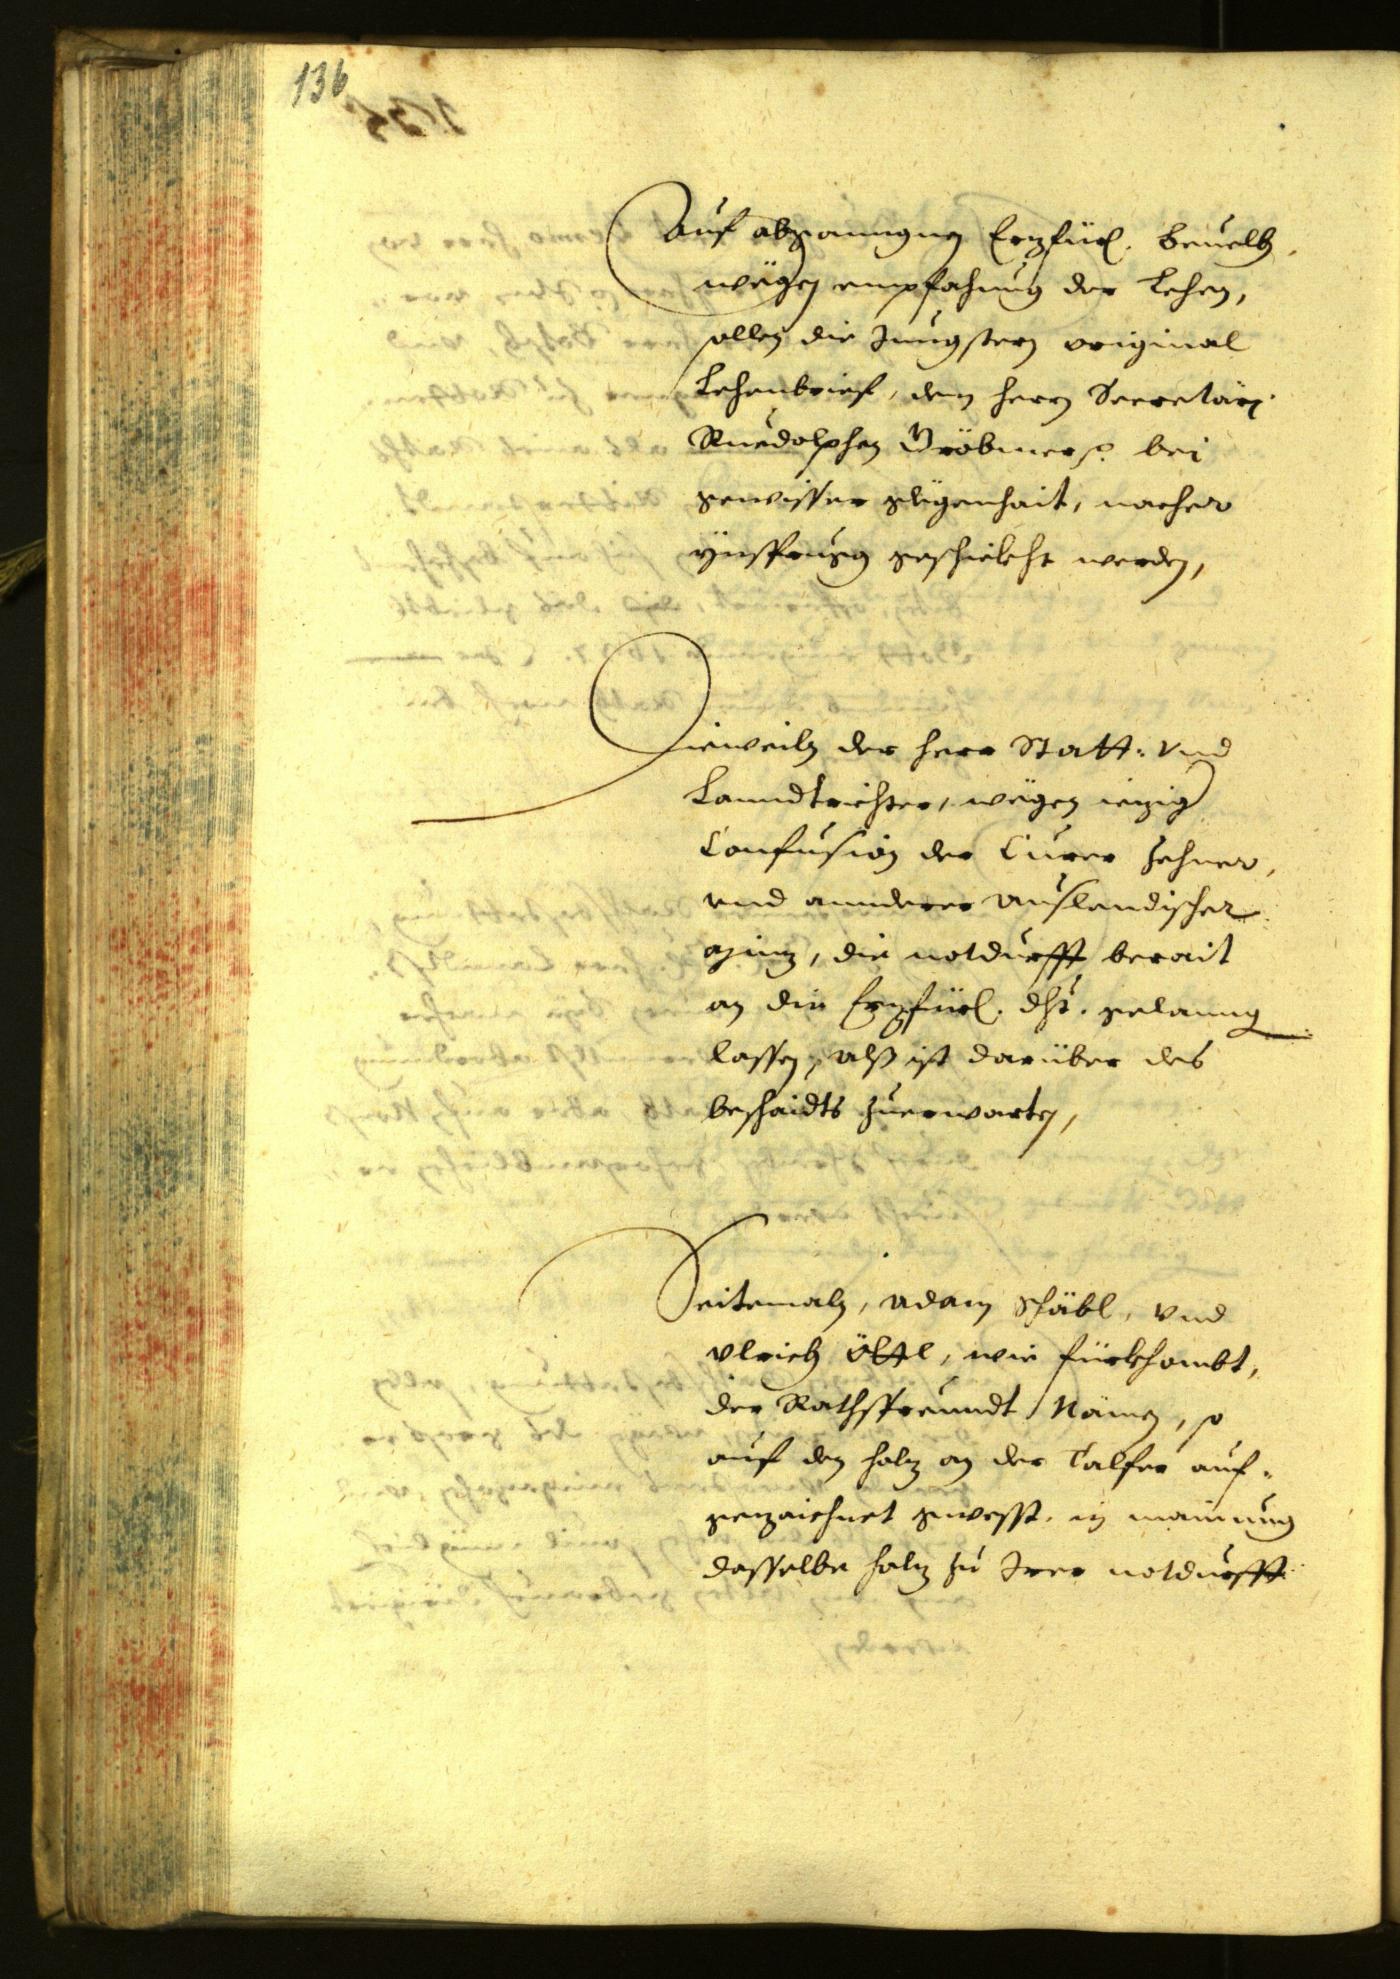 136
Auf abganngnen Erzfürl. Beuelch,
wegen empfahung der Lehen,
sollen die Jungsten original
Lehenbrief, dem herrn Secretari
Ruedolphen Gröbmer, bei
gewisser glegenhait, nacher
Ynsprugg geschickht werden,
Dieweiln der herr Statt: vnd
Lanndtrichter, wegen iezig
Confusion der Curer Zehner,
vnd annderer auslendischer
, die notdurfft berait
an die Erzfürl. dht. gelanng
lassen, Alß ist darüber des
beschaidts zuerwarten,
Seitemaln, Adam Schäbl, vnd
Vlrich Öttl, wie fürkhombt,
der Rathsfreundt Nämen, so
auf den holz an der Talfer auf-
gezaichnet gwesst, in mainung
dasselbe holz zu Irer notdurfft